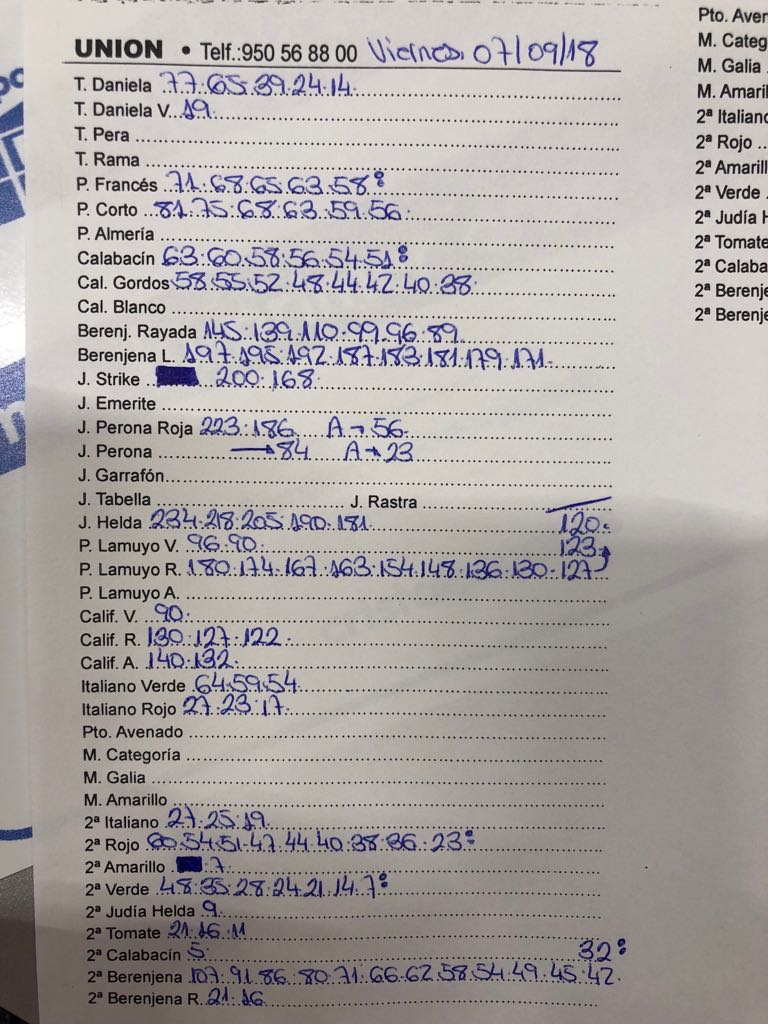 UNION • Telf.:950 56 88 00 Viernes. 07/09/18
T. Daniela 77.65.39.24.14.
T. Daniela V. 19.
T. Pera
T. Rama
P. Francés 71.68.65.63.58:
P. Corto 81.75.68.63.59.56.
P. Almería
Calabacín 63.60.58.56.54.51:
Cal. Gordos 58.55.52.48.44.42.40.38.
Cal. Blanco
Berenj. Rayada 145.139.110.99.96.89.
Berenjena L. 197.195.192.187.183.181.179.171.
J. Strike 200.168.
J. Emerite
J. Perona Roja 223.186. A→56.
J. Perona →84 A→23
J. Garrafón
J. Tabella J. Rastra
J. Helda 234.218.205.190.181. 120.
P. Lamuyo V. 96.90. 123.
P. Lamuyo R. 180.174.167.163.154.148.136.130.127
P. Lamuyo A.
Calif. V. 90.
Calif. R. 130.127.122.
Calif. A. 140.132.
Italiano Verde 64.59.54.
Italiano Rojo 27.23.17.
Pto. Avenado
M. Categoría
M. Galia
M. Amarillo
2ª Italiano 27.25.19.
2ª Rojo 60.54.51.47.44.40.38.36.23:
2ª Amarillo 7.
2ª Verde 48.35.28.24.21.14.7:
2ª Judía Helda 9.
2ª Tomate 21.16.11
2ª Calabacín 5. 32:
2ª Berenjena 107.91.86.80.71.66.62.58.54.49.45.42.
2ª Berenjena R. 21.16.
Pto. Aven
M. Categ
M. Galia
M. Amaril
2ª Italiano
2ª Rojo
2ª Amarill
2ª Verde
2ª Judía H
2ª Tomate
2ª Calaba
2ª Berenje
2ª Berenje